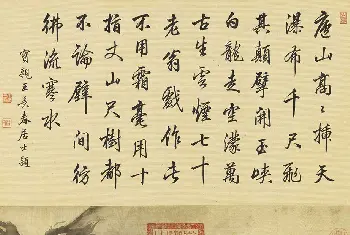 廬山高〻插天
瀑布千尺飛
其巔擘開玉峽
白龍走空濛萬
古生雲煙七十
老翁戲作此
不用霜毫用十
指丈山尺樹都
不論壁間彷
彿流寒水
寶親王長春居士題